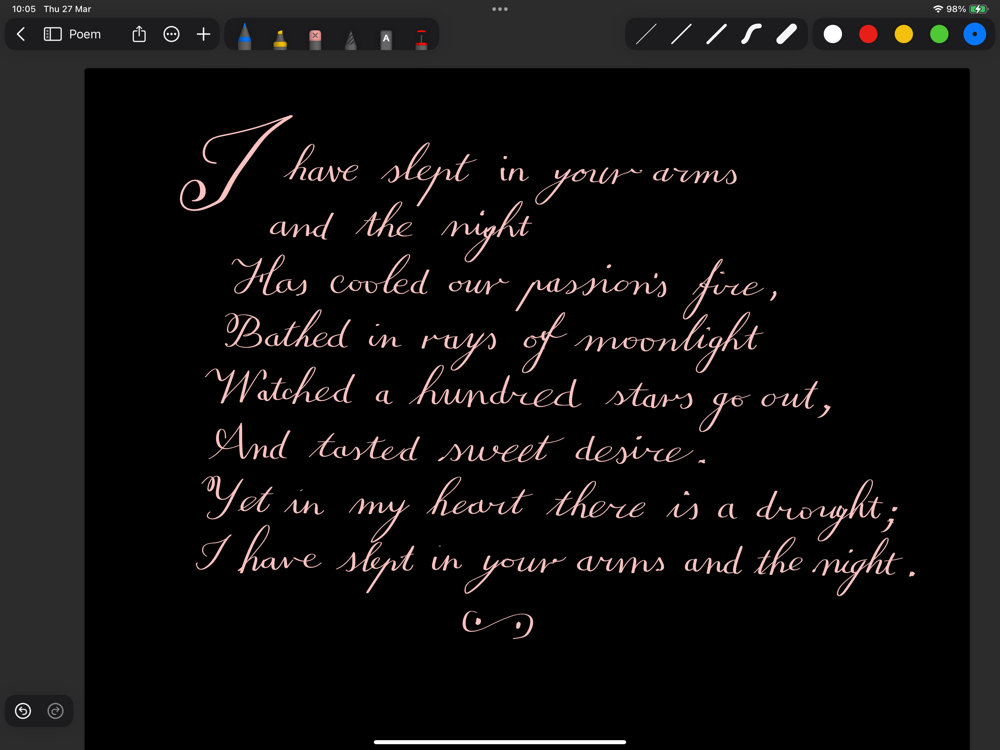 10:05 Thu 27 Mar
98%
Poem
A
I have slept in your arms
and the night
Has cooled our passion's fire,
Bathed in rays of moonlight
Watched a hundred stars go out,
And tasted sweet desire.
Yet in my heart there is a drought;
I have slept in your arms and the night.